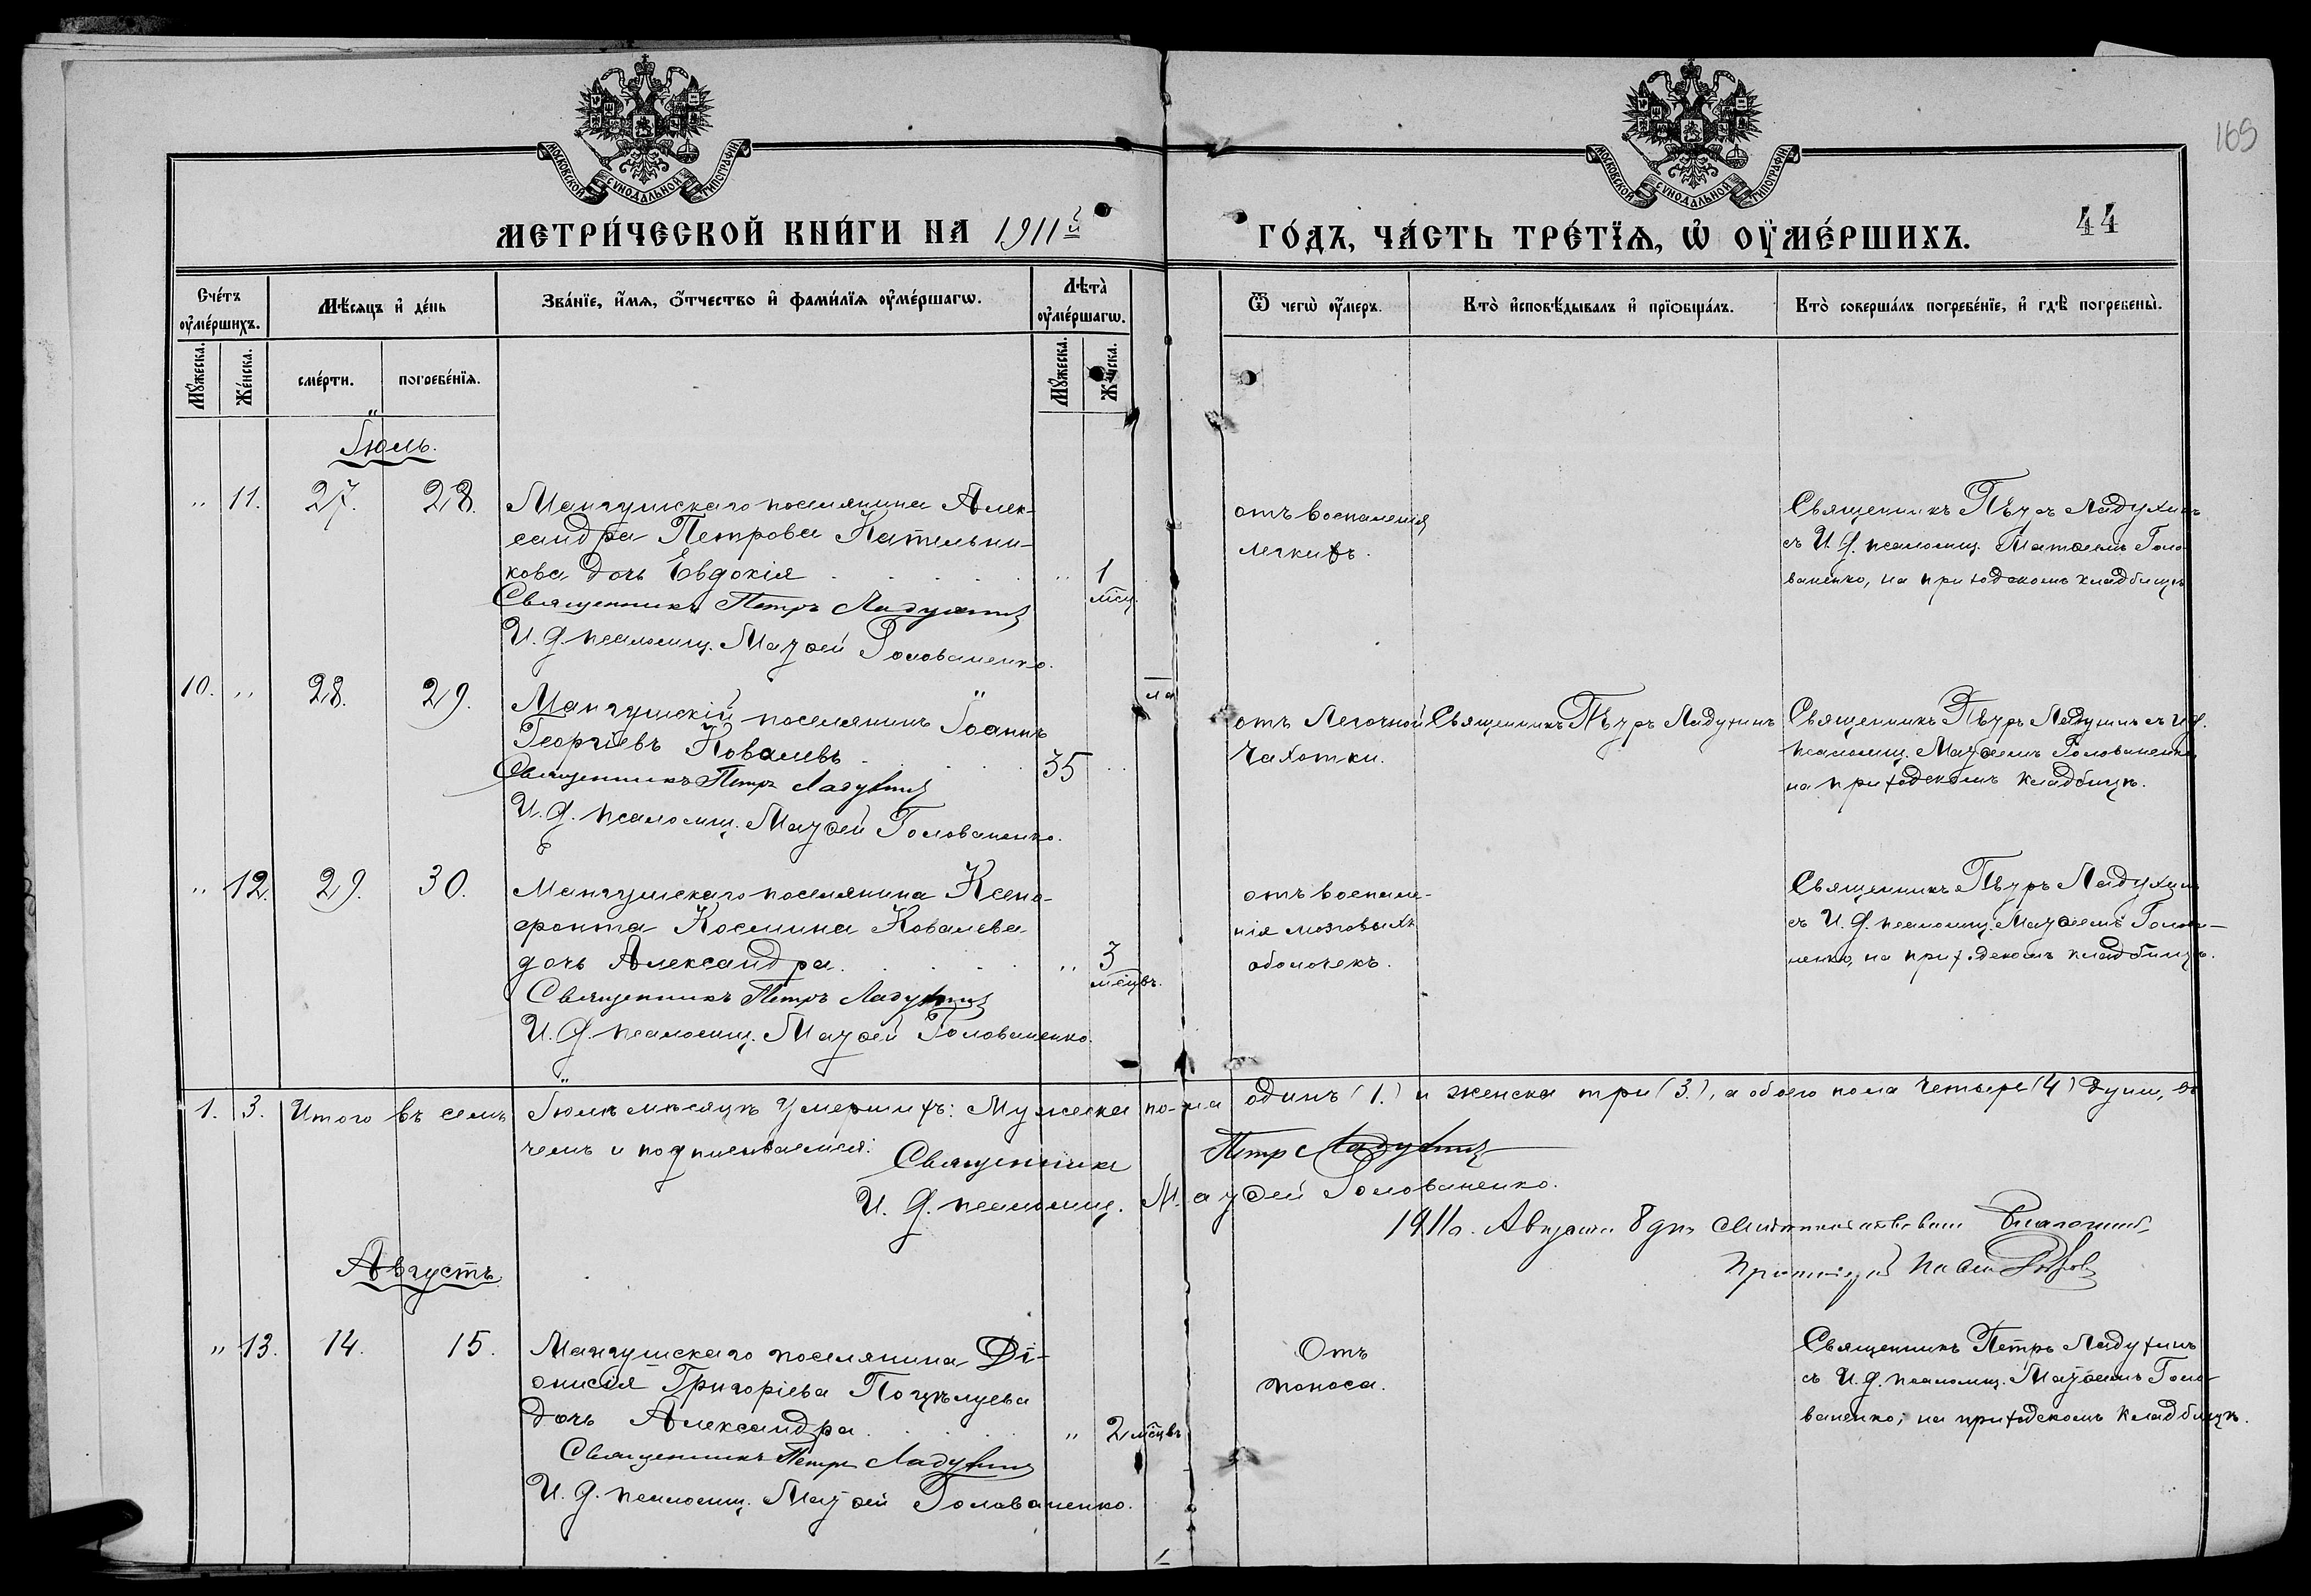 169
МОСКОВСКОЙ СѴНОДАЛЬНОЙ ТИПОГРАФІИ
МОСКОВСКОЙ СѴНОДАЛЬНОЙ ТИПОГРАФІИ
МЕТРИ́ЧЕСКОЙ КНИ́ГИ НА 1911й
ГО́ДЪ, ЧА́СТЬ ТРЕ́ТЇѦ, Ѡ҆ ОУ҆МЕ́РШИХЪ.
44
Счéтъ оу҆мéршихъ.
Мѣ́сяцъ и҆ дéнь
Звáнїе, и҆́мя, ѻ҆́тчество и҆ фами́лїя оу҆мéршагѡ.
Лѣ́та оу҆мéршагѡ.
Ѿ чегѡ̀ оу҆́меръ.
Кто̀ и҆сповѣ́дывалъ и҆ прїѡбщáлъ.
Кто̀ совершáлъ погребéнїе, и҆ гдѣ̀ погребены̀.
Мꙋ́жеска.
Жéнска.
смéрти.
погребéнїя.
Мꙋ́жеска.
Жéнска.
Іюль.
" 11. 27. 28.
Мангушскаго поселянина Алек-
сандра Петрова Кательни-
кова дочь Евдокія . . . . . " 1 мсц.
Священникъ Петръ Ладухинъ
И. д. псаломщ. Матѳей Голованенко.
отъ воспаленія
легкихъ.
Священникъ Пётръ Ладухинъ
съ И. д. псаломщ. Матѳеемъ Голо-
ваненко, на приходскомъ кладбищѣ
10. " 28. 29.
Мангушскій поселянинъ Іоаннъ
Георгіевъ Ковалевъ . . . . 35 "
Священникъ Петръ Ладухинъ
И. д. псаломщ. Матѳей Голованенко.
отъ Легочной
Чахотки.
Священникъ Пётръ Ладухинъ
Священникъ Пётръ Ладухинъ съ И. д.
псаломщ. Матѳеемъ Голованенко
на приходскомъ кладбищѣ.
" 12. 29. 30.
Мангушскаго поселянина Ксено-
фонта Космина Ковалева
дочь Александра . . . . " 3 мсцвъ.
Священникъ Петръ Ладухинъ
И. д. псаломщ. Матѳей Голованенко.
отъ воспале-
нія мозговыхъ
оболочекъ.
Священникъ Пётръ Ладухинъ
съ И. д. псаломщ. Матѳеемъ Голова-
ненко, на приходскомъ кладбищѣ.
1. 3. Итого въ семъ Іюлѣ мѣсяцѣ умершихъ: Мужеска по-ла одинъ (1.) и женска три (3.), а обоего пола Четыре (4) души, въ
чемъ и подписываемся: Священникъ Петръ Ладухинъ
И. д. псаломщ. Матѳей Голованенко.
1911 г. Августа 8 дня
Август.
" 13. 14. 15.
Мангушскаго поселянина Ді-
онисія Григоріева Поцѣлуева
дочь Александра . . . . " 2 мсцвъ
Священникъ Петръ Ладухинъ
И. д. псаломщ. Матѳей Голованенко.
Отъ
поноса.
Священникъ Петръ Ладухинъ
съ И. д. псаломщ. Матѳеемъ Голо-
ваненко, на приходскомъ кладбищѣ.